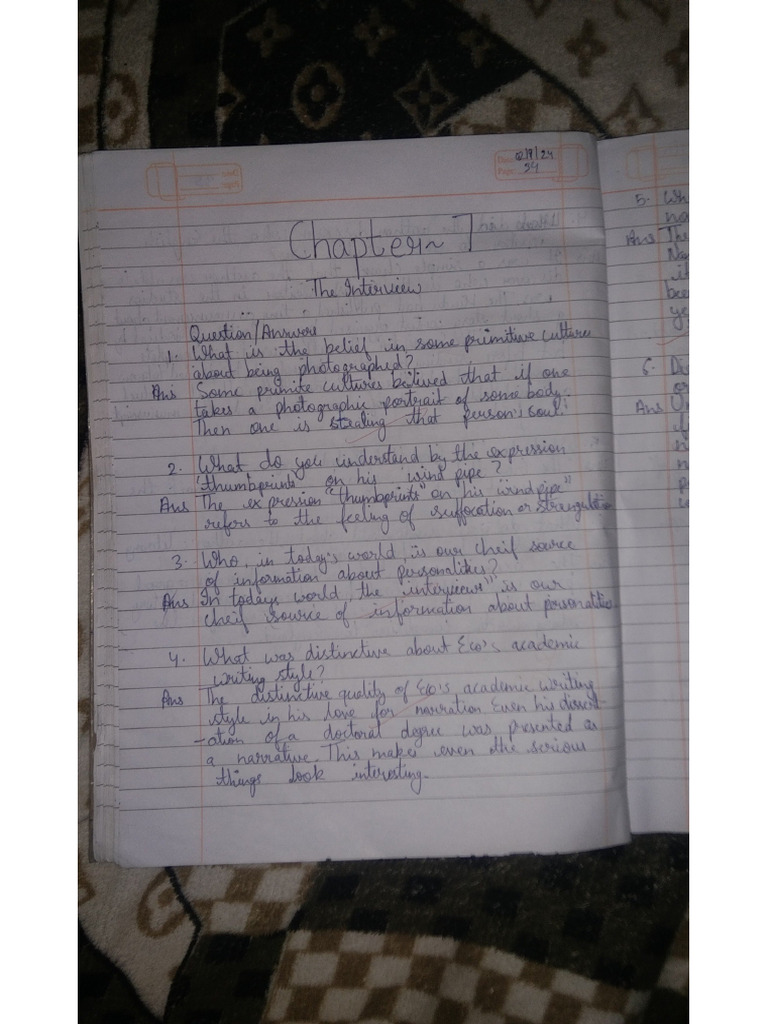 Date 02/9/24
Page 24
Chapter~ 7
The Interview
Question/Answers
1. What is the belief in some primitive cultures
about being photographed?
Ans Some primite cultures belived that if one
takes a photographic portrait of some body.
Then one is stealing that person's soul.
2. What do you understand by the expression
"thumbprints on his wind pipe?
Ans The expression "thumbprints" on his windpipe"
refers to the feeling of suffocation or strangulation
3. Who, in today's world, is our cheif source
of information about personalities?
Ans In todays world the interviews" is our
cheif source of information about personalities
4. What was distinctive about Eco's academic
writing style?
Ans The distinctive quality of Eco's academic writing
style in his love for narration Even his dissert
-ation of a doctoral degree was presented as
a narrative. This makes even the serious
things look interesting.
5. Wh
Ans The
6.
Ans